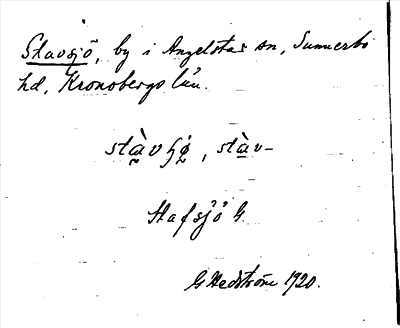 Stavsjö, by i Angelstad sn, Sunnerbo
hd, Kronobergs län.
stàvʃö̀, stàv-
Stafsjö G.
G Hedström 1920.